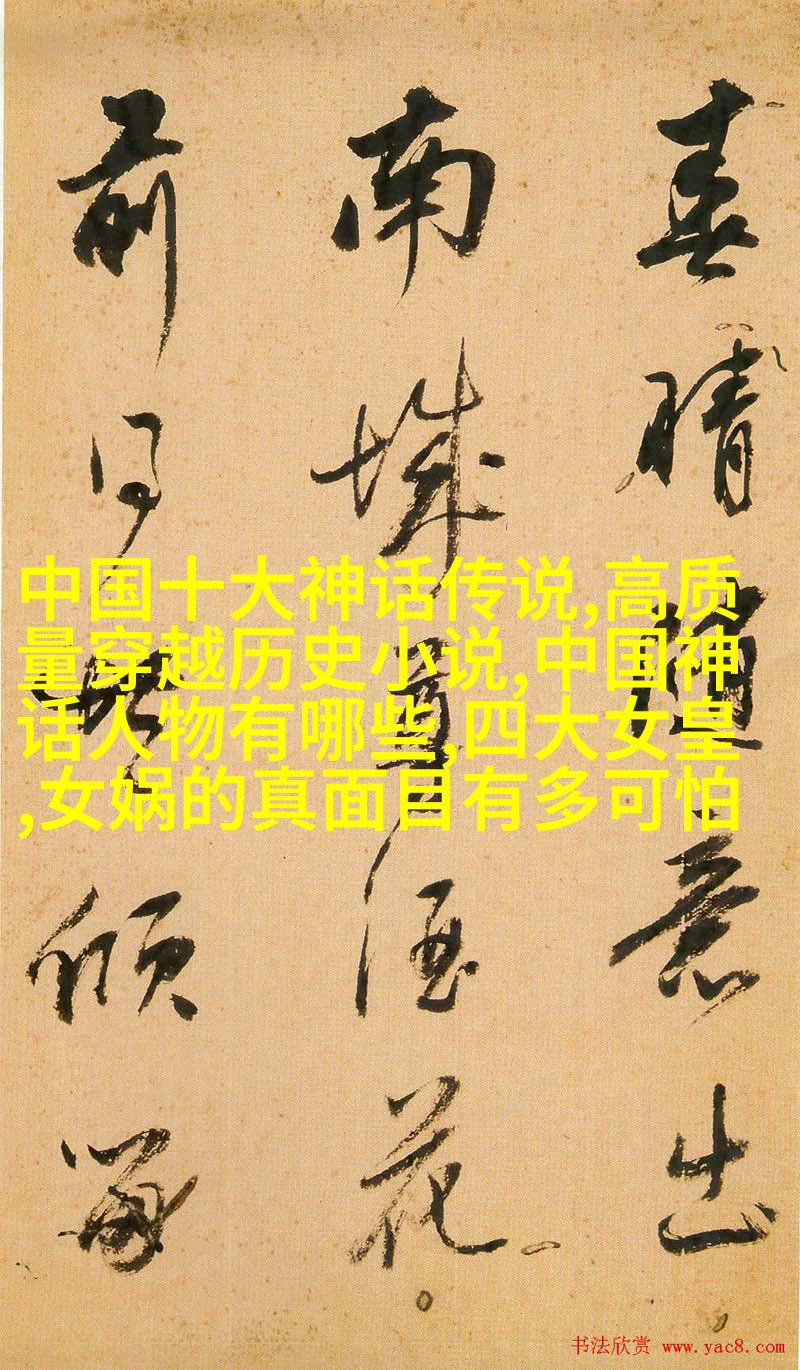 春晴随意出
南城置酒花
前日
倾
中国十大神话传说,高质
量穿越历史小说,中国神
话人物有哪些,四大女皇
,女娲的真面目有多可怕
书法欣赏 www.yac8.com